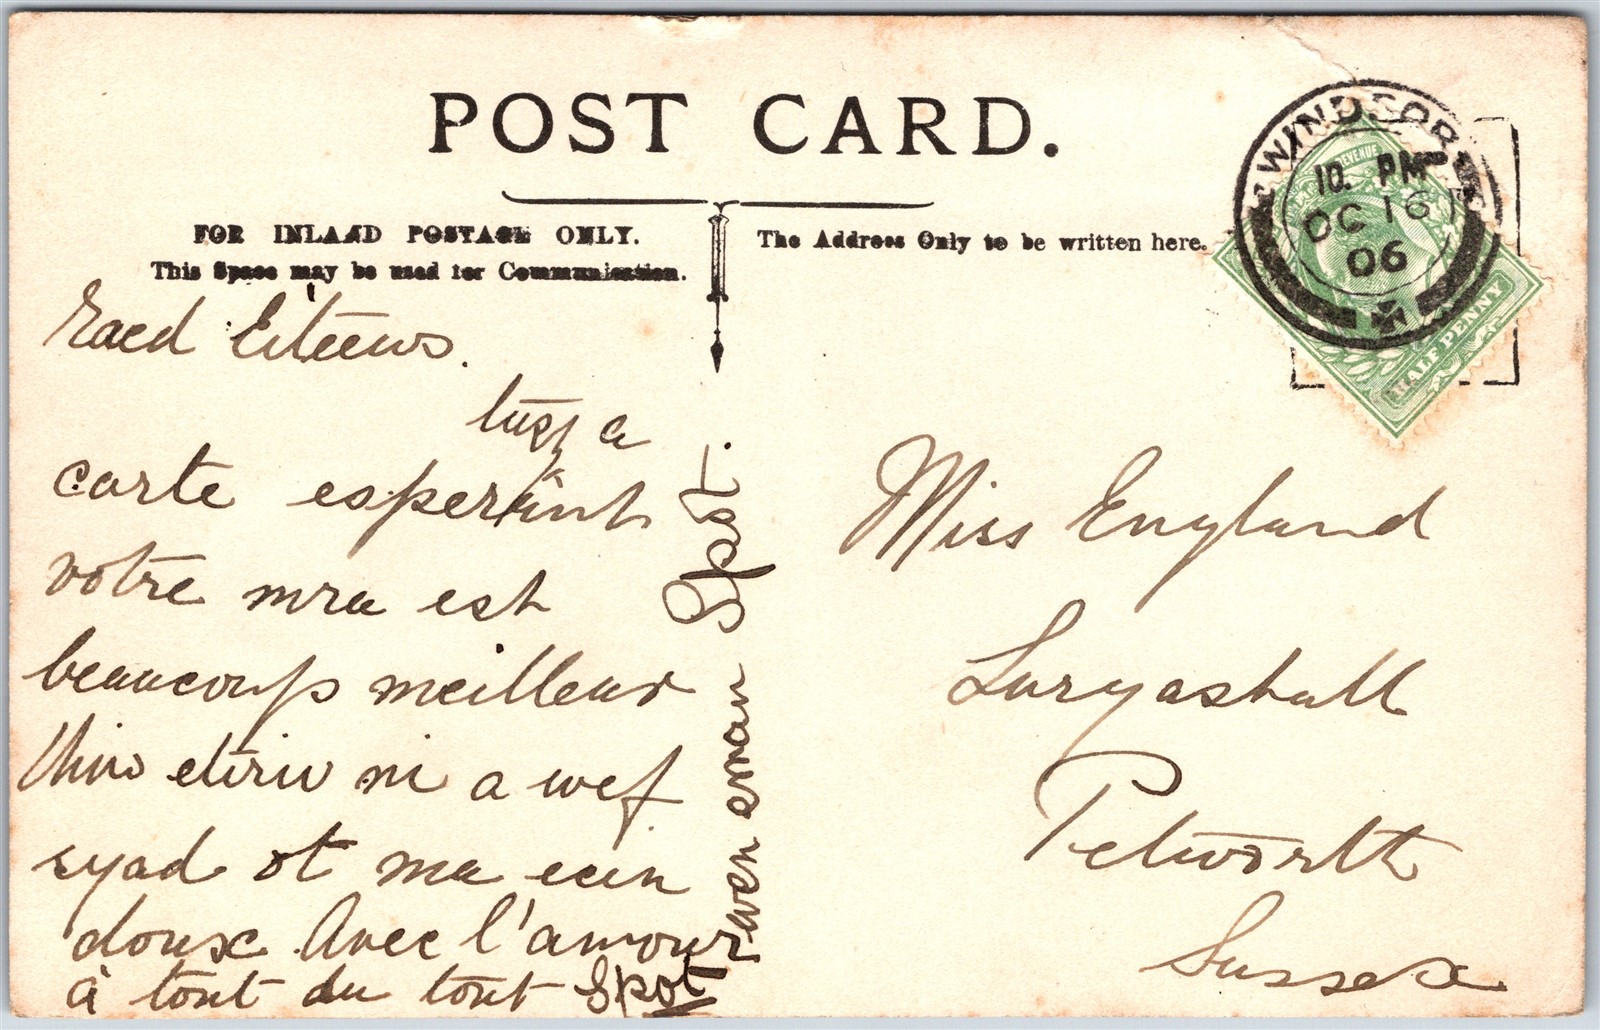 POST CARD.
FOR INLAND POSTAGE ONLY.
This Space may be used for Communication.
The Address Only to be written here.
WINDSOR
10. PM
OC 16
06
REVENUE
HALF PENNY
Raed Eiteews.
tusj a
carte esperant
votre mra est
beaucoup meilleur
etirw ni a wef
syad ot me
doux Avec l'amour
à tout du tout Spot
wen eman Spot.
Miss England
Luryashall
Petworth
Sussex